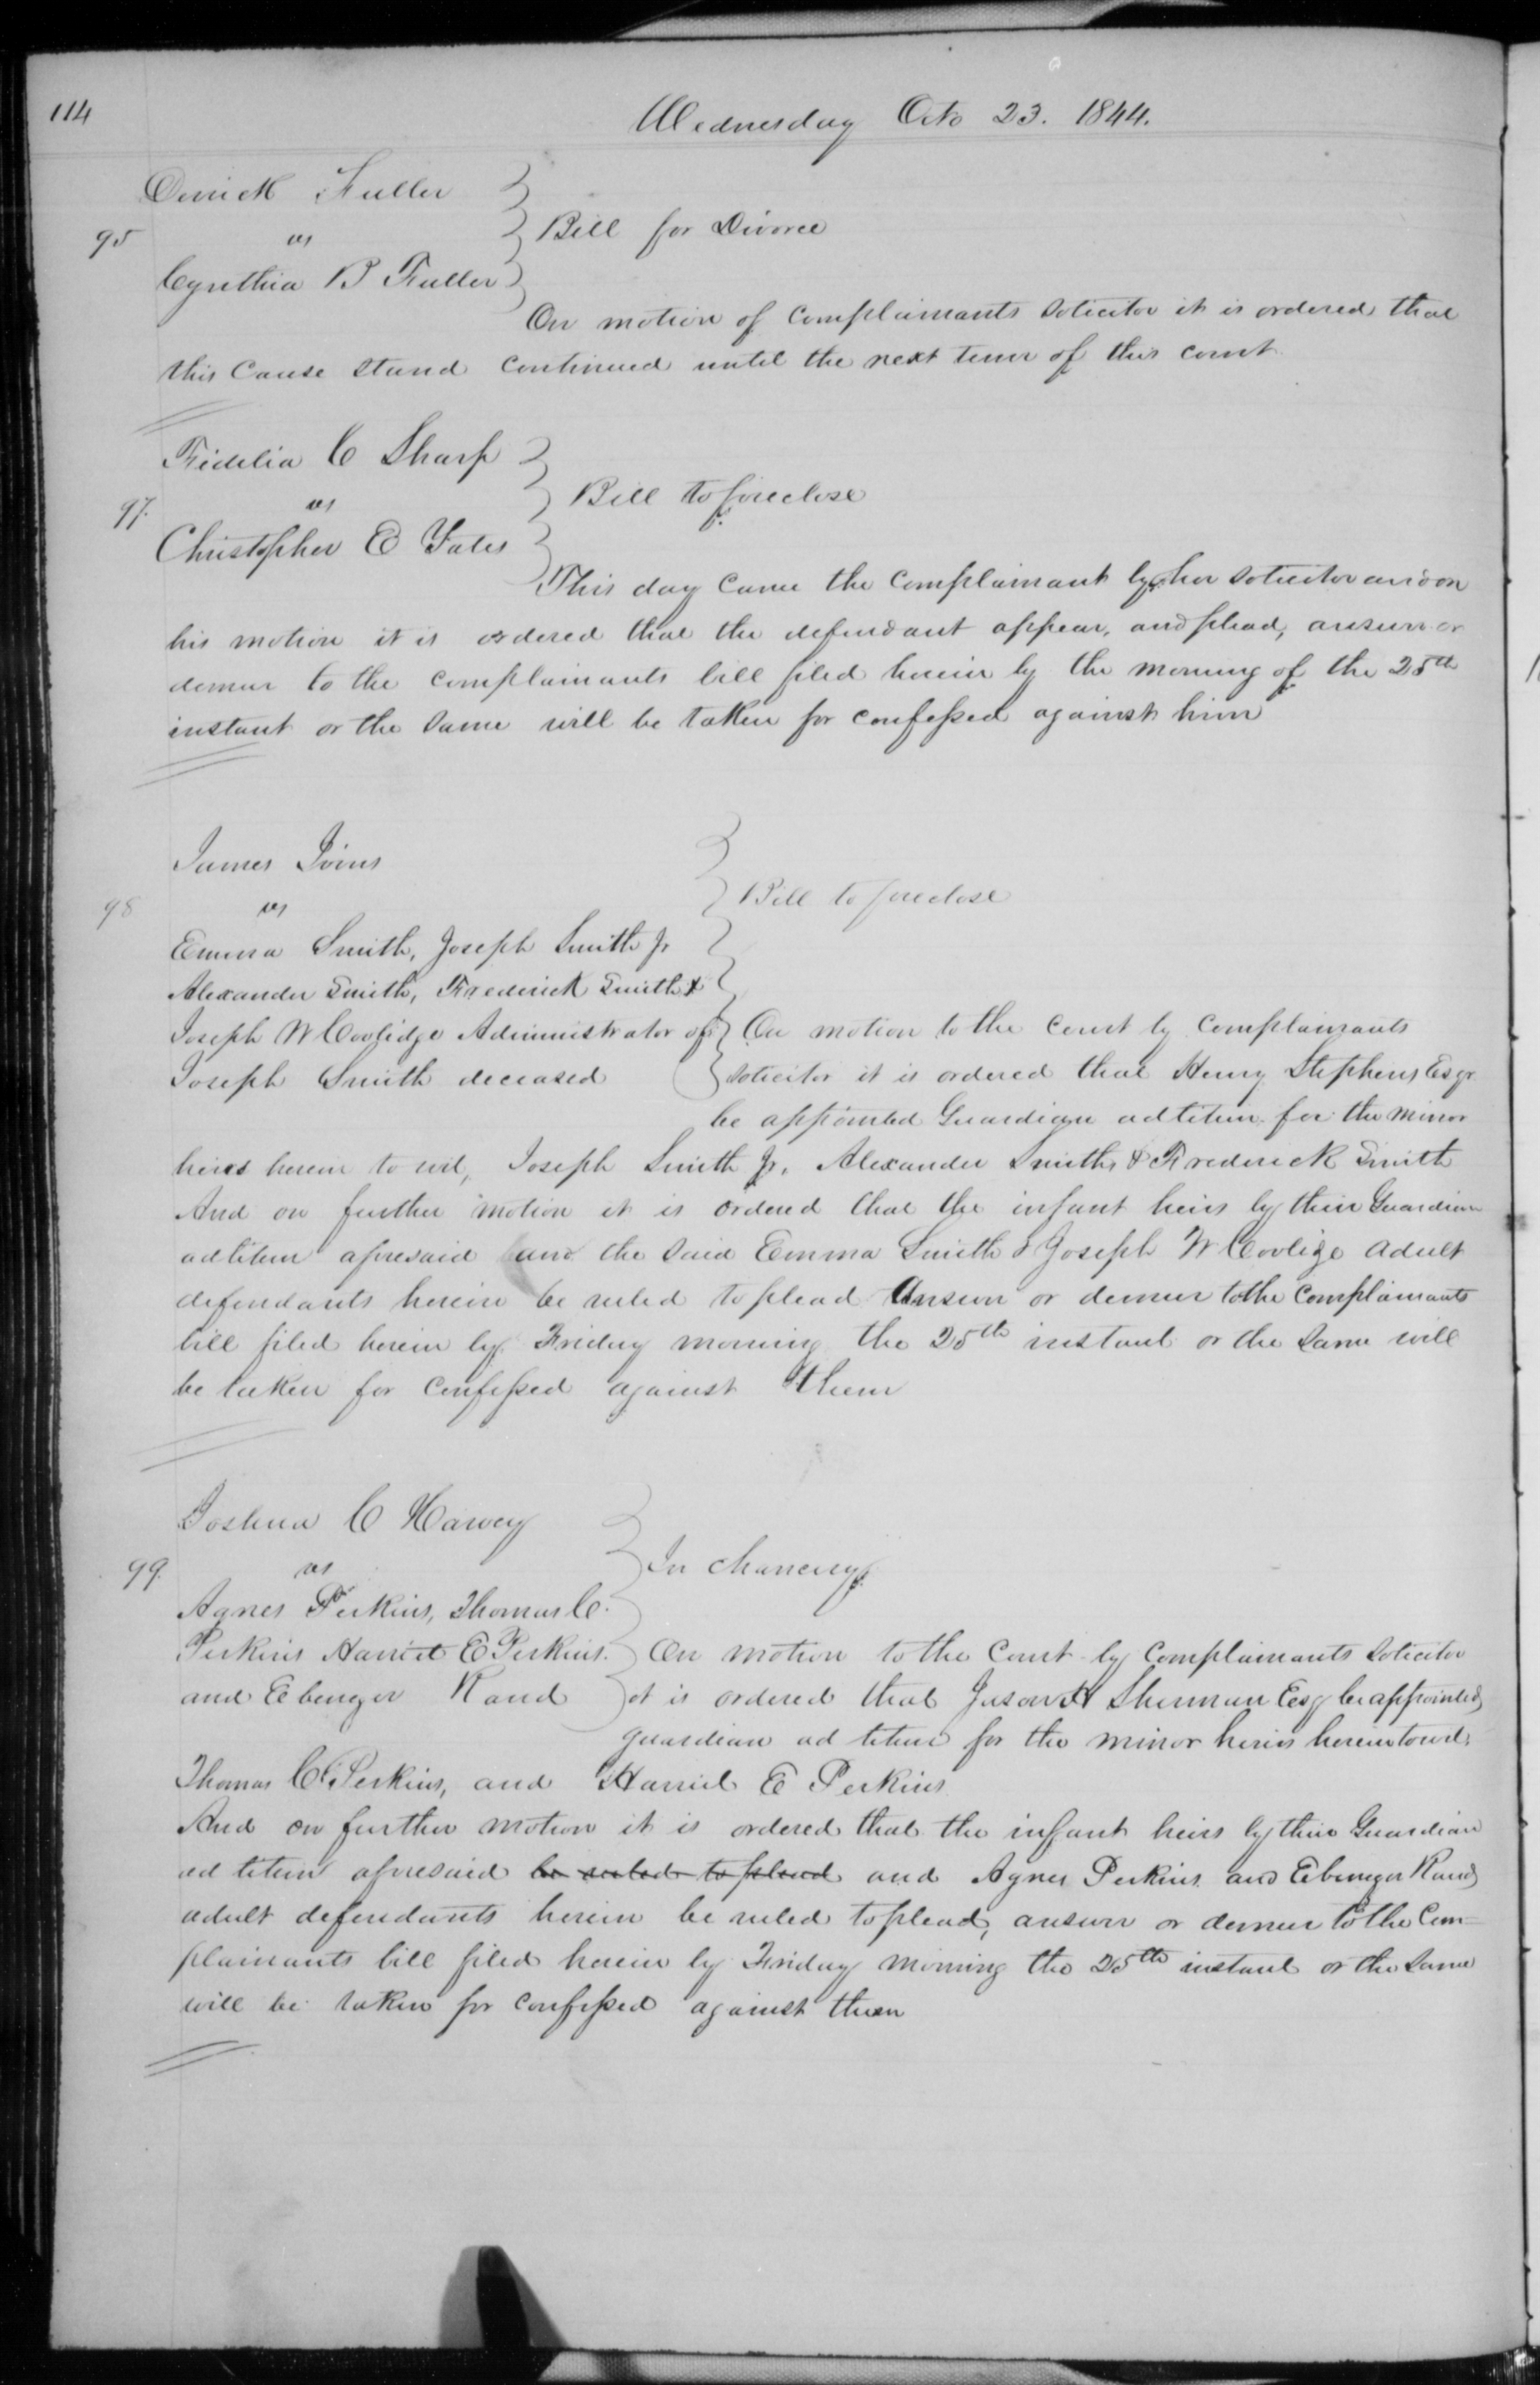 114
Wednesday Octo 23. 1844.
Derrick Fuller
95 vs Bill for Divorce
Cynthia B Fuller
On motion of complainants Solicitor it is ordered that
this Cause stand continued until the next term of this court
Fidelia C Sharp
97. vs Bill to foreclose
Christopher E Yates
This day came the complainant by her Solicitor and on
his motion it is ordered that the defendant appear, and plead, answer or
demur to the complainants bill filed herein by the morning of the 25th
instant or the same will be taken for confessed against him
James Ivins
98 vs Bill to foreclose
Emma Smith, Joseph Smith Jr
Alexander Smith, Frederick Smith &
Joseph W Coolidge Administrator of On motion to the court by complainants
Joseph Smith deceased Solicitor it is ordered that Henry Stephens Esqr
be appointed Guardian ad litem for the minor
heirs herein to wit, Joseph Smith Jr. Alexander Smith, & Frederick Smith
And on further motion it is ordered that the infant heirs by their Guardian
ad litem aforesaid and the said Emma Smith & Joseph W Coolige adult
defendants herein be ruled to plead Answer or demur to the complainants
bill filed herein by Friday morning the 25th instant or the same will
be taken for confessed against them
Joshua C Harvey
99. vs In chancery
Agnes Perkins, Thomas C.
Perkins Harriet E Perkins. On motion to the Court by complainants Solicitor
and Ebenezer Rand it is ordered that Jason H Sherman Esq be appointed
guardian ad litem for the minor heirs herein to wit,
Thomas C Perkins, and Harriet E Perkins
And on further motion it is ordered that the infant heirs by their Guardian
ad litem aforesaid be ruled to plead and Agnes Perkins and Ebenezer Rand
adult defendants herein be ruled to plead, answer or demur to the Com-
plainants bill filed herein by Friday morning the 25th instant or the same
will be taken for confessed against them